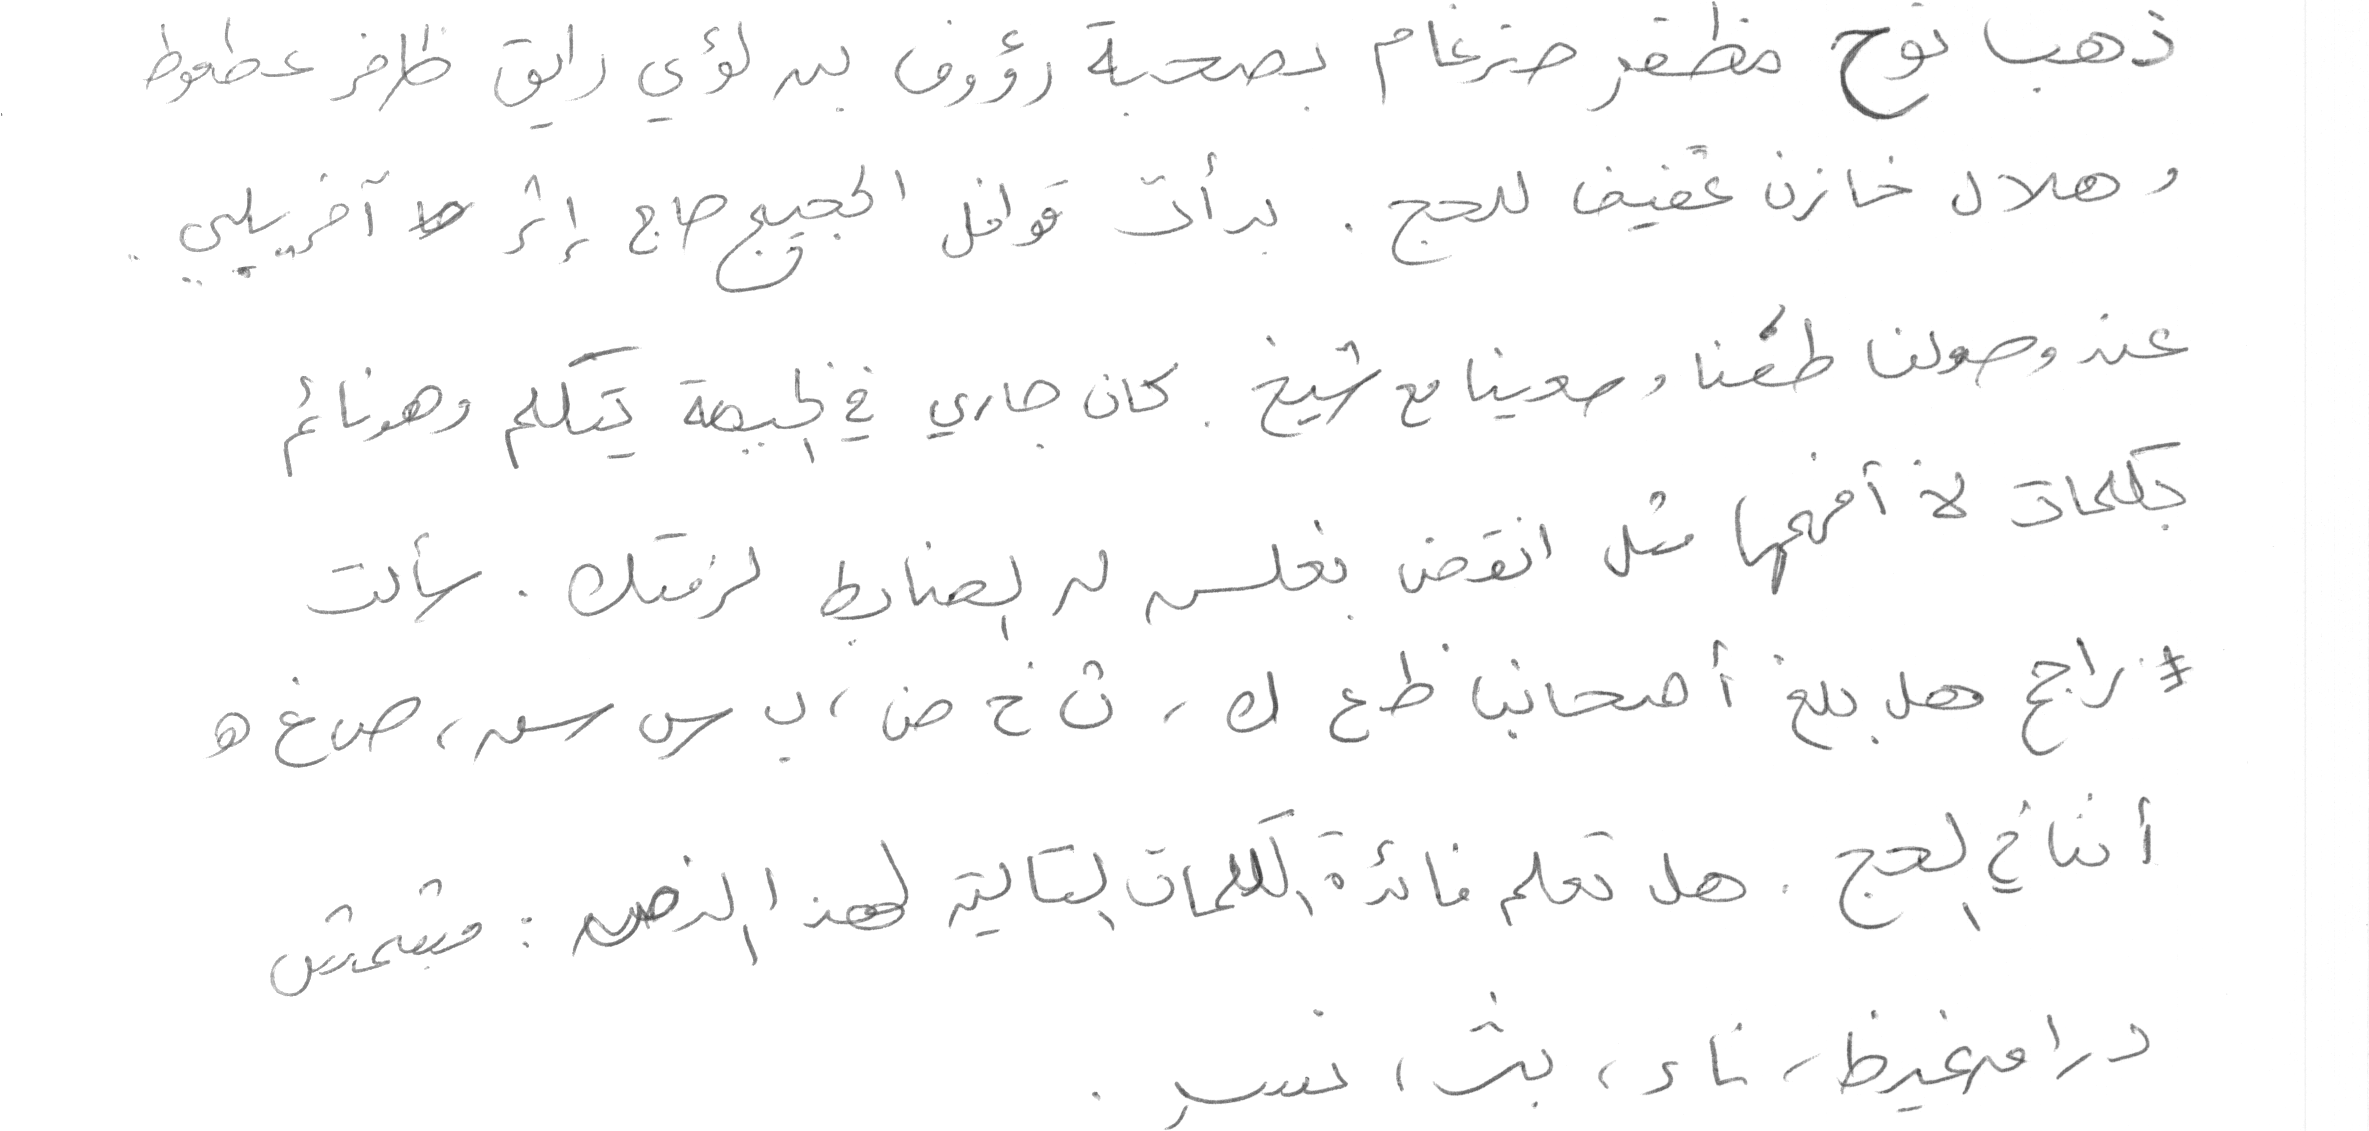 ذهب نوح مظفر ضرغام بصحبة رؤوف بن لؤي رايق ظافر عطعوط
وهلال خازن عفيف للحج . بدأت قوافل الحجيج حاج إثر آخر يلبي .
عند وصولنا طفنا وسعينا مع شيخ . كان جاري في الخيمة يتكلم وهو نائم
بكلمات لا أفهمها مثل انقض بغلس له الضابط لزمتك . سألت
راجح هل بلغ أصحابنا ظ ع ك ، ث خ ض ، ب س سه ، ص غ ه
أثناء الحج . هل تعلم فائدة الكلمات التالية لهذا النص : مشمش
دراهم غيظ ، ناء ، بث ، نسر .